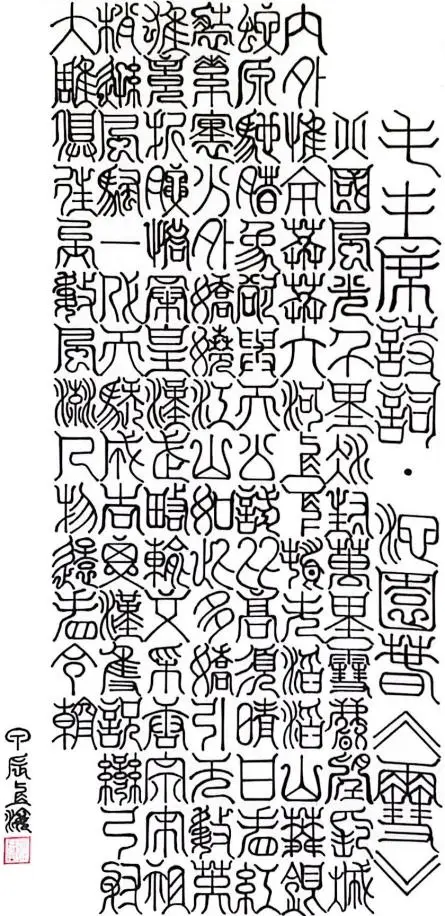 毛主席詩詞·沁園春《雪》
北國風光千里冰封萬里雪飄望長城
內外惟余莽莽大河上下頓失滔滔山舞銀
蛇原馳腊象欲與天公試比高須晴日看紅
裝素裹分外嬌嬈江山如此多嬌引無數英
雄競折腰惜秦皇漢武略輸文采唐宗宋祖
稍遜風騷一代天驕成吉思漢隻識彎弓射
大雕俱往矣數風流人物還看今朝
甲辰